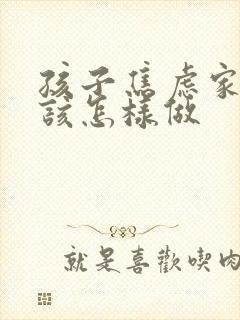 孩子焦虑家
该怎样做
就是喜歡喫肉